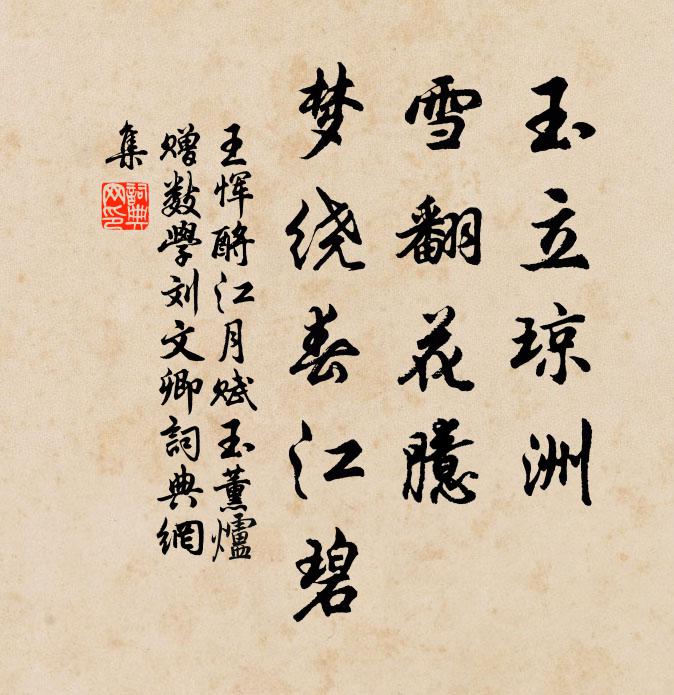 玉立琼洲
雪翻花臆
梦绕春江碧
王恽酹江月赋玉薰炉
赠数学刘文卿詞典網
集
詞典網印